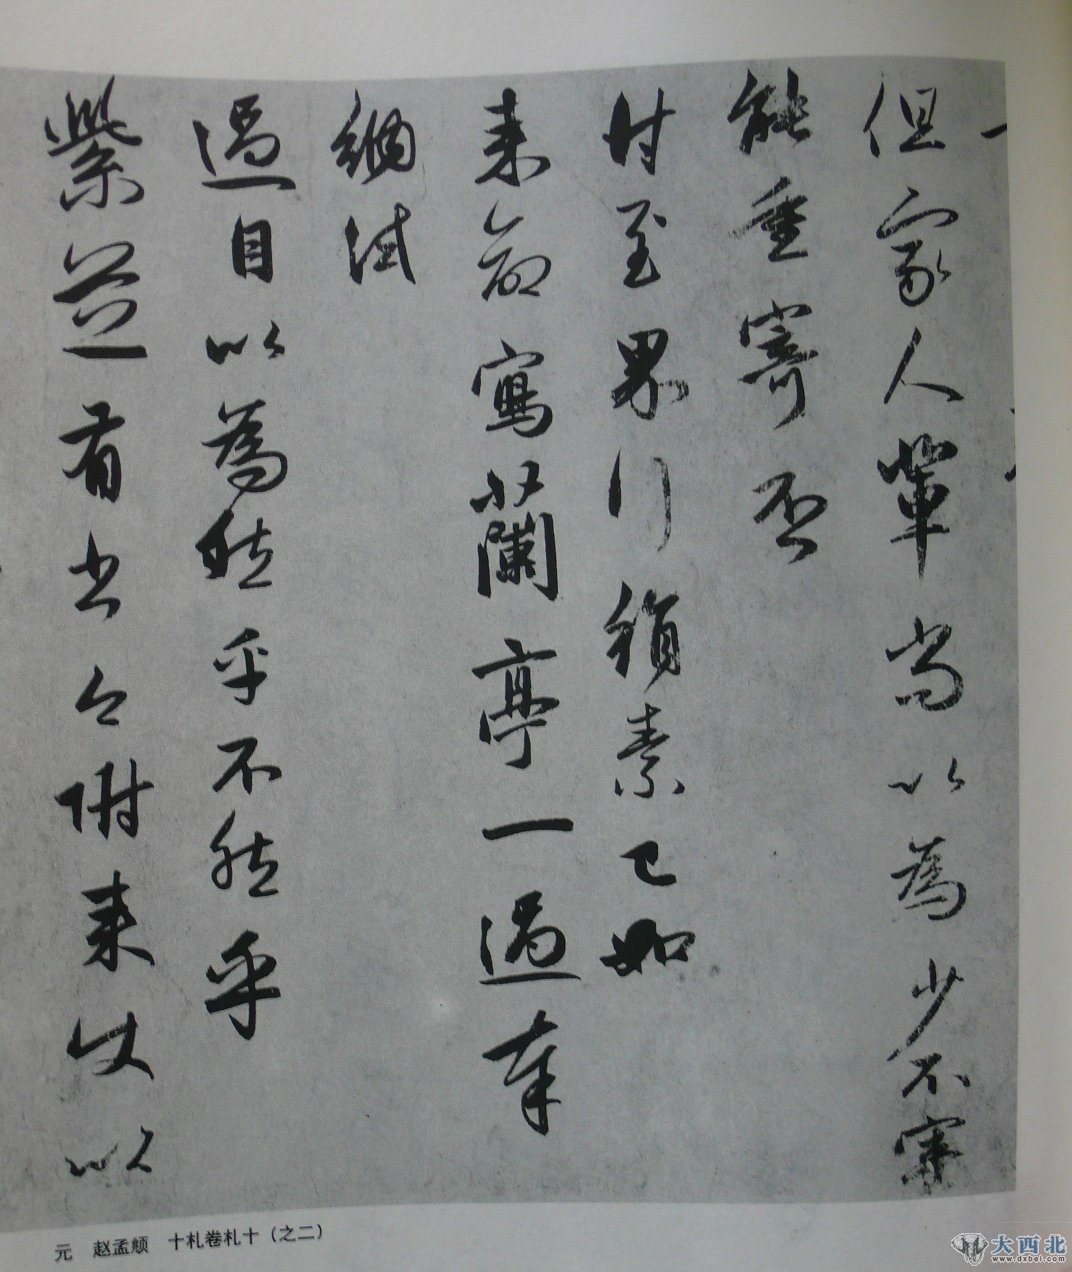 但家人輩尚以為少不審
能重寄否
付至界行絹素已如
来命寫蘭亭一過奉
納試
過目以為然乎不然乎
紫芝有书今附来使以
元 赵孟頫 十札卷札十（之二）
大西北
www.dxbei.com